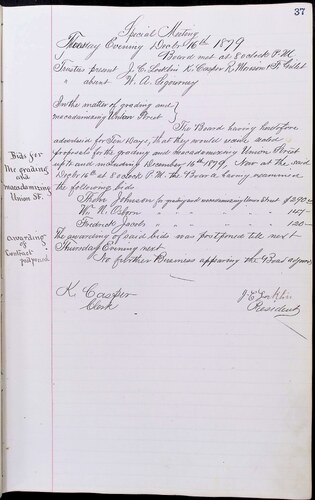 37
Special Meeting
Tuesday Evening Decbr 16th 1879
Board met at 8 oclock P.M.
Trustees present J. E. K. Casper R. & F. Gillet
" absent W. A. Sigourney
In the matter of grading and
macadamizing Union Street
The Board having heretofore
advertised for Ten Days, that they would receive sealed
proposals for the grading and macadamizing Union Street
up to and including December 16th 1879, Now at the said
Decbr 16th at 8 oclock P.M. the Board having examined
the following bids
Thos Johnson for grading and macadamizing Union Street $290.00
Wm H. Osborn " " " " "
Fredrick Jacobs " " " " " 120
The awarding of said bids was postponed till next
Tuesday Evening next
No further Business appearing the Board adjourned
K. Casper
Clerk
J E
President
Bids for
the grading
and
macadamizing
Union St.
awarding
of
Contract
postponed